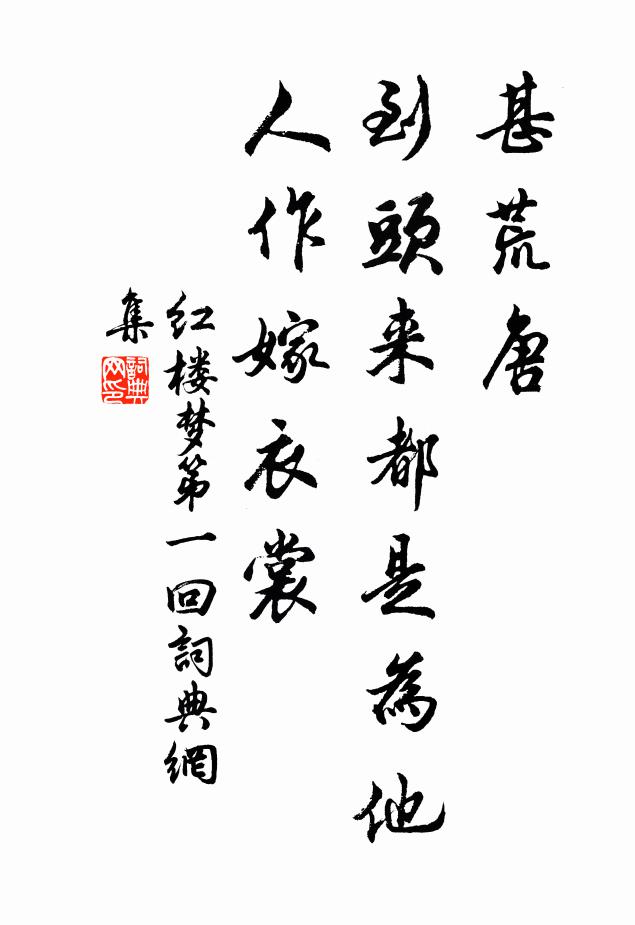 甚荒唐
到頭来都是為他
人作嫁衣裳
红楼梦第一回詞典網
集
詞典
网印